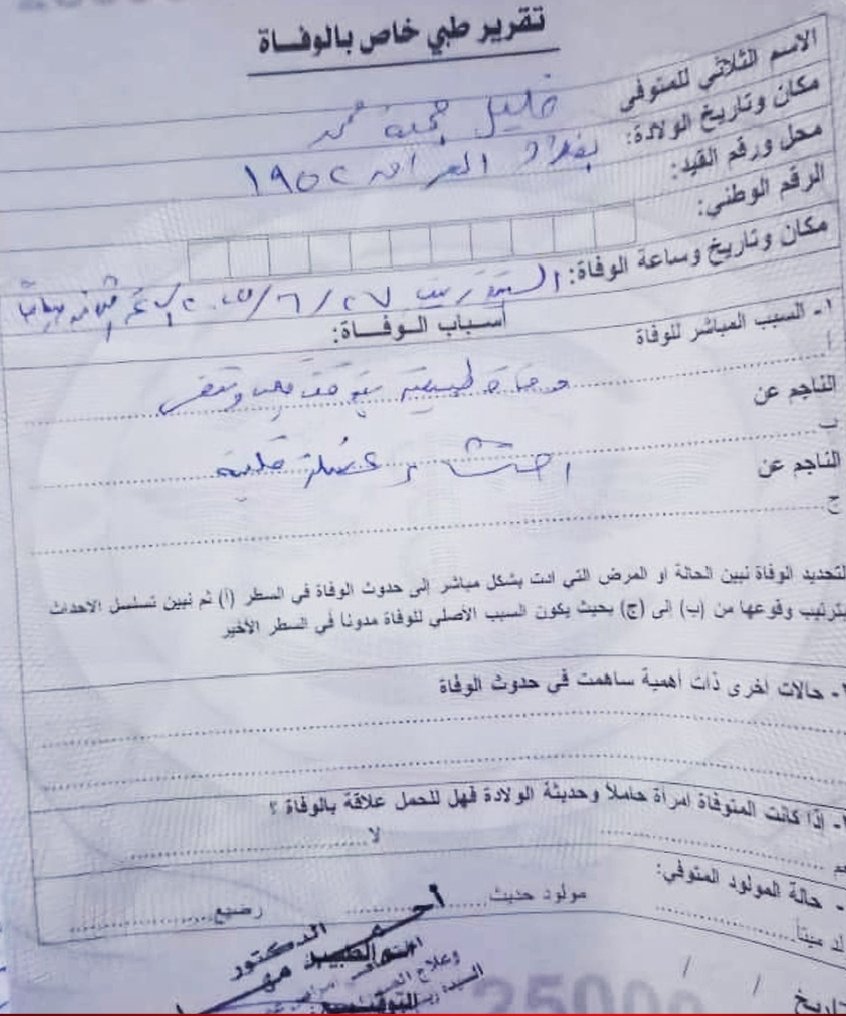 تقرير طبي خاص بالوفاة
الاسم الثلاثي للمتوفى خليل جمعة محمد
مكان وتاريخ الولادة: بغداد العراق ١٩٥٢
محل ورقم القيد:
الرقم الوطني:
مكان وتاريخ وساعة الوفاة: السيدة زينب ٢٧/٦/٢٠٢٥
أسباب الوفاة:
١- السبب المباشر للوفاة
أ
وفاة طبيعية بتوقف قلب وتنفس
الناجم عن
ب
احتشاء عضلة قلبية
الناجم عن
ج
لتحديد الوفاة نبين الحالة او المرض التي ادت بشكل مباشر إلى حدوث الوفاة في السطر (أ) ثم نبين تسلسل الاحداث
بترتيب وقوعها من (ب) إلى (ج) بحيث يكون السبب الأصلي للوفاة مدونا في السطر الأخير
- حالات اخرى ذات أهمية ساهمت في حدوث الوفاة
- إذا كانت المتوفاة امرأة حاملاً وحديثة الولادة فهل للحمل علاقة بالوفاة ؟
لا
- حالة المولود المتوفي:
ميتاً مولود حديث رضيع
الدكتور
وعلاج
السيدة
التوقيع
/ /
2500